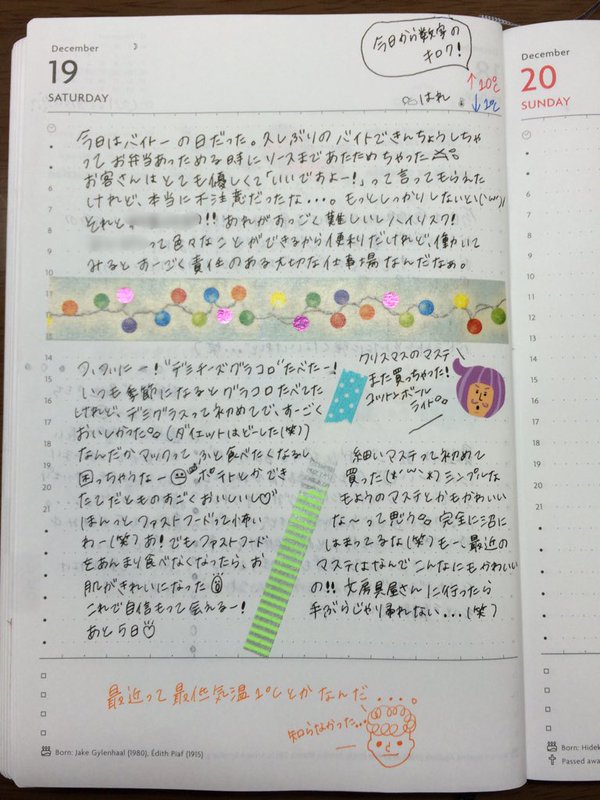 December
19
SATURDAY
今日から数字の
キロク!
はれ
↑10℃
↓1℃
December
20
SUNDAY
今日はバイトーの日だった。久しぶりのバイトできんちょうしちゃ
ってお弁当あっためる時にソースまであたためちゃった
お客さんはとても優しくて「いいですよー!」って言ってもらえた
けれど、本当に不注意だったな...。もっとしっかりしないと(;'ω')/
それと、 )!! あれがすっごく難しいしハイリスク!
って色々なことができるから便利だけれど、働いて
みるとすーごく責任のある大切な仕事場なんだなぁ。
つ、ついにー!"デミチーズグラコロ"たべたー!
いつも季節になるとグラコロたべてた
けれど、デミグラスって初めてで、すーごく
おいしかった。(ダイエットはどーした(笑))
なんだかマックってふと食べたくなるし
困っちゃうなー ポテトとかでき
たてだとものすごくおいしいし♡
ほんっとファストフードって怖い
わー(笑) あ!でもファストフード
をあんまり食べなくなったら、お
肌がきれいになった
これで自信もって会えるー!
あと5日
クリスマスのマステ
また買っちゃった!
コットンボール
ライト
細いマステって初めて
買った(*'ω'*) シンプルな
もようのマステとかもかわいい
な〜って思う。完全に沼に
はまってるな(笑) もー、最近の
マステはなんでこんなにもかわいい
の!! 文房具屋さんに行ったら
手ぶらじゃ帰れない...(笑)
最近って最低気温1℃とかなんだ....。
知らなかった...
Born: Jake Gylenhaal (1980), Édith Piaf (1915)
Born: Hidek
Passed awa
10
11
12
13
14
15
16
17
18
19
20
21